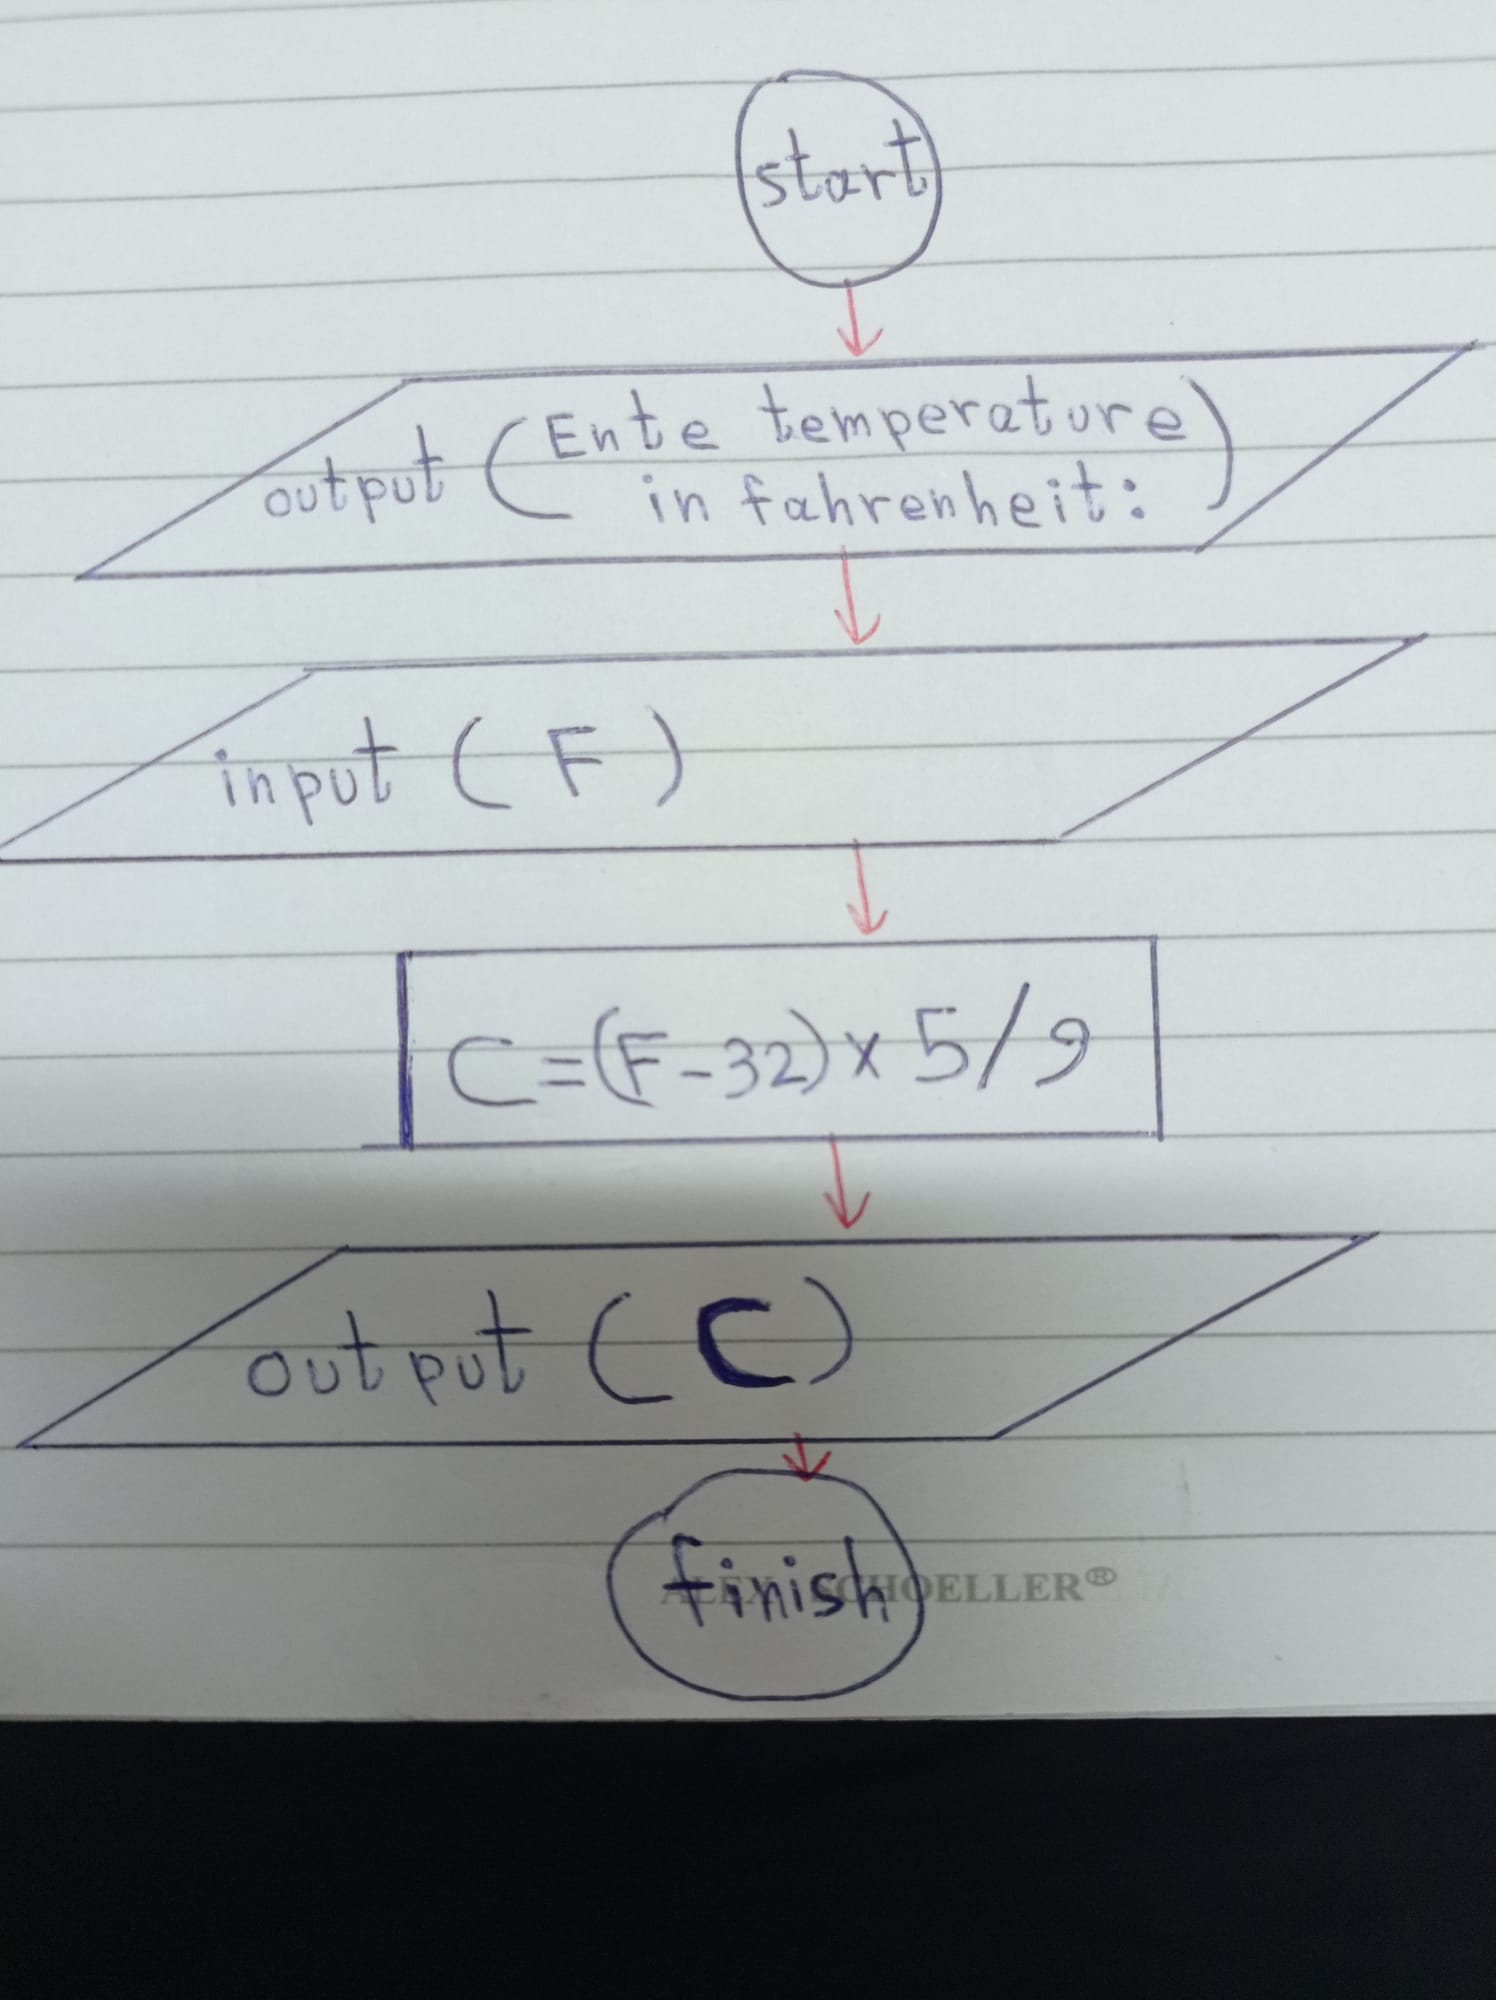 start
output (Ente temperature
in fahrenheit:)
input (F)
C=(F-32)x 5/9
output (C)
finish
SCHOELLER®